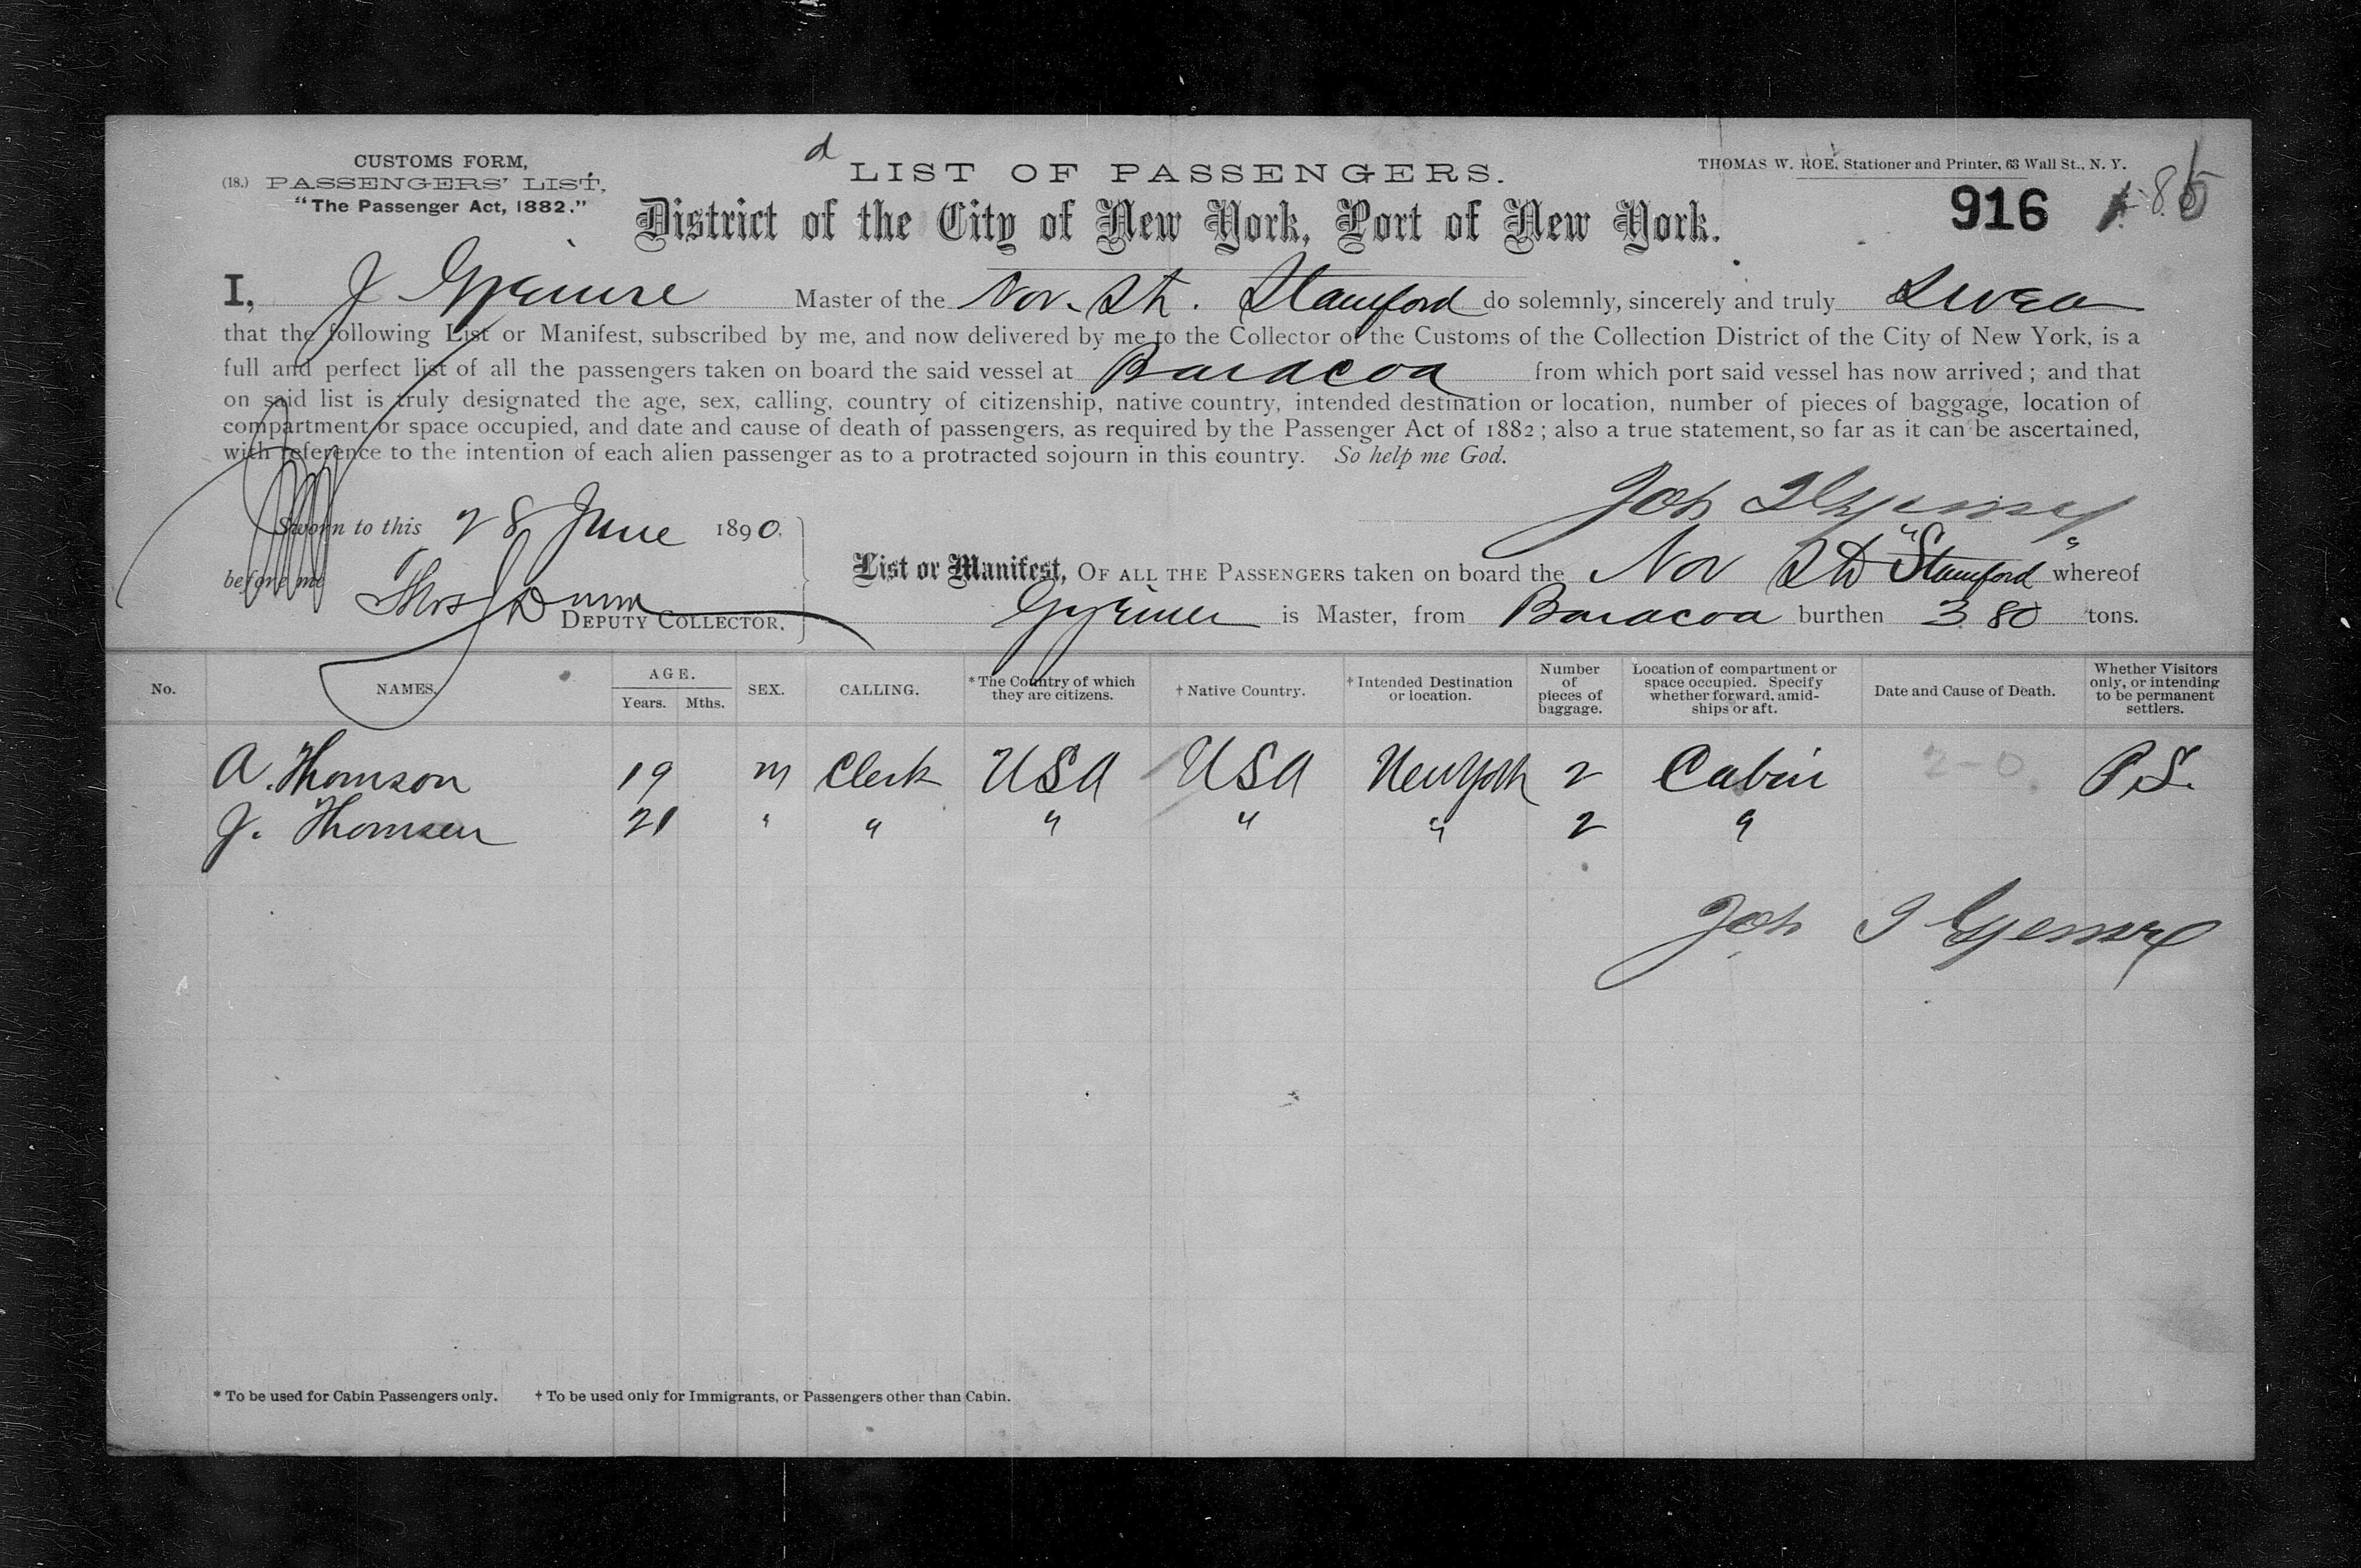 d
CUSTOMS FORM,
(18.) PASSENGERS' LIST,
"The Passenger Act, 1882."
LIST OF PASSENGERS.
THOMAS W. ROE, Stationer and Printer, 63 Wall St., N. Y.
District of the City of New York, Port of New York.
916
I, J Master of the Nor. St. Stamford do solemnly, sincerely and truly Swear
that the following List or Manifest, subscribed by me, and now delivered by me to the Collector of the Customs of the Collection District of the City of New York, is a
full and perfect list of all the passengers taken on board the said vessel at Baracoa from which port said vessel has now arrived; and that
on said list is truly designated the age, sex, calling, country of citizenship, native country, intended destination or location, number of pieces of baggage, location of
compartment or space occupied, and date and cause of death of passengers, as required by the Passenger Act of 1882; also a true statement, so far as it can be ascertained,
with reference to the intention of each alien passenger as to a protracted sojourn in this country. So help me God.
Joh
Sworn to this 28 June 1890.
before me Thos Dunn
DEPUTY COLLECTOR.
List or Manifest, OF ALL THE PASSENGERS taken on board the Nor "Stamford" whereof
is Master, from Baracoa burthen 380 tons.
No. NAMES. AGE. Years. Mths. SEX. CALLING. *The Country of which they are citizens. † Native Country. *Intended Destination or location. Number of pieces of baggage. Location of compartment or space occupied. Specify whether forward, amidships or aft. Date and Cause of Death. Whether Visitors only, or intending to be permanent settlers.
A. Thomson 19 m Clerk USA USA New York 2 Cabin 2-0 P.S.
J. Thomsen 21 " " " " " 2 "
Joh
* To be used for Cabin Passengers only. † To be used only for Immigrants, or Passengers other than Cabin.